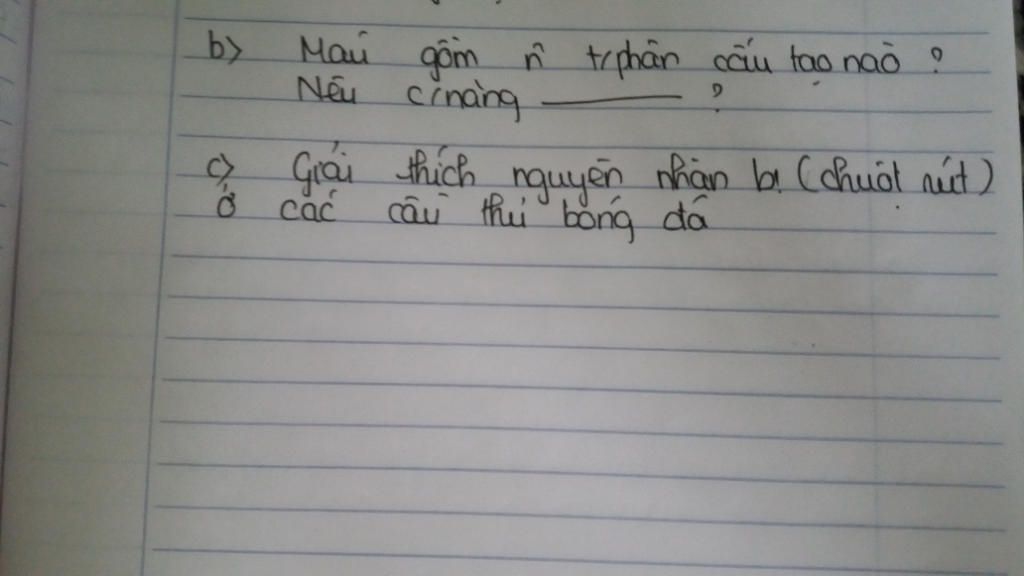 b) Máu gồm n~ t/phần cấu tạo nào ?
Nêu c/năng ——— ?
c) Giải thích nguyên nhân bị (chuột rút)
ở các cầu thủ bóng đá